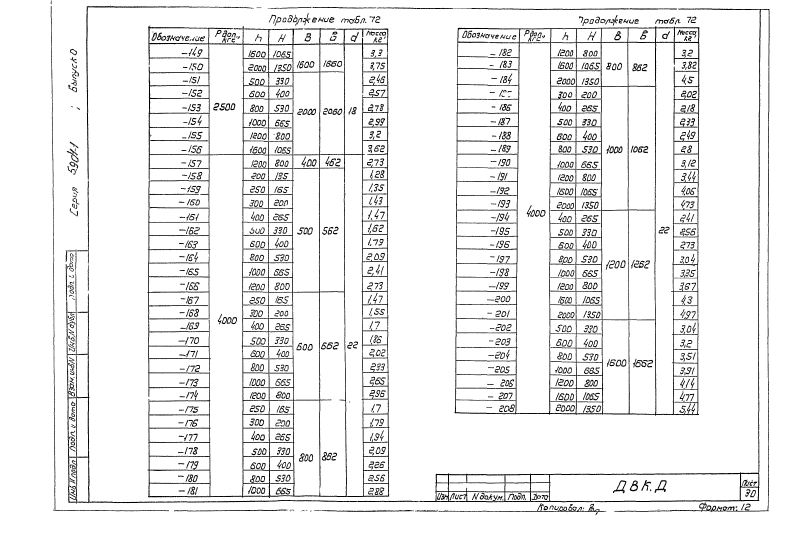 Продолжение табл. 72
Обозначение Рдоп., кгс h H B Б d Масса кг
-149 2500 1600 1065 1600 1660 18 3,3
-150 2000 1350 3,75
-151 500 330 2000 2060 2,46
-152 600 400 2,57
-153 800 530 2,78
-154 1000 665 2,99
-155 1200 800 3,2
-156 1600 1065 3,62
-157 4000 1200 800 400 462 22 2,73
-158 200 135 500 562 1,28
-159 250 165 1,35
-160 300 200 1,43
-161 400 265 1,47
-162 500 330 1,62
-163 600 400 1,79
-164 800 530 2,09
-165 1000 665 2,41
-166 1200 800 2,73
-167 250 165 600 662 1,47
-168 300 200 1,55
-169 400 265 1,7
-170 500 330 1,86
-171 600 400 2,02
-172 800 530 2,33
-173 1000 665 2,65
-174 1200 800 2,96
-175 250 165 800 862 1,7
-176 300 200 1,79
-177 400 265 1,94
-178 500 330 2,09
-179 600 400 2,26
-180 800 530 2,56
-181 1000 665 2,88
Продолжение табл. 72
Обозначение Рдоп., кгс h H B Б d Масса кг
-182 4000 1200 800 800 862 22 3,2
-183 1600 1065 3,82
-184 2000 1350 4,5
300 200 1000 1062 2,02
-186 400 265 2,18
-187 500 330 2,33
-188 600 400 2,49
-189 800 530 2,8
-190 1000 665 3,12
-191 1200 800 3,44
-192 1600 1065 4,06
-193 2000 1350 4,73
-194 400 265 1200 1262 2,41
-195 500 330 2,56
-196 600 400 2,73
-197 800 530 3,04
-198 1000 665 3,35
-199 1200 800 3,67
-200 1600 1065 4,3
-201 2000 1350 4,97
-202 500 330 1600 1662 3,04
-203 600 400 3,2
-204 800 530 3,51
-205 1000 665 3,91
-206 1200 800 4,14
-207 1600 1065 4,77
-208 2000 1350 5,44
Серия 5.904-1 ; Выпуск 0
Инв. № подл. Подп. и дата Взам. инв. № Инв. № дубл. Подп. и дата
Изм. Лист № докум. Подп. Дата
ДВК.Д
Лист
30
Копировал:
Формат: 12